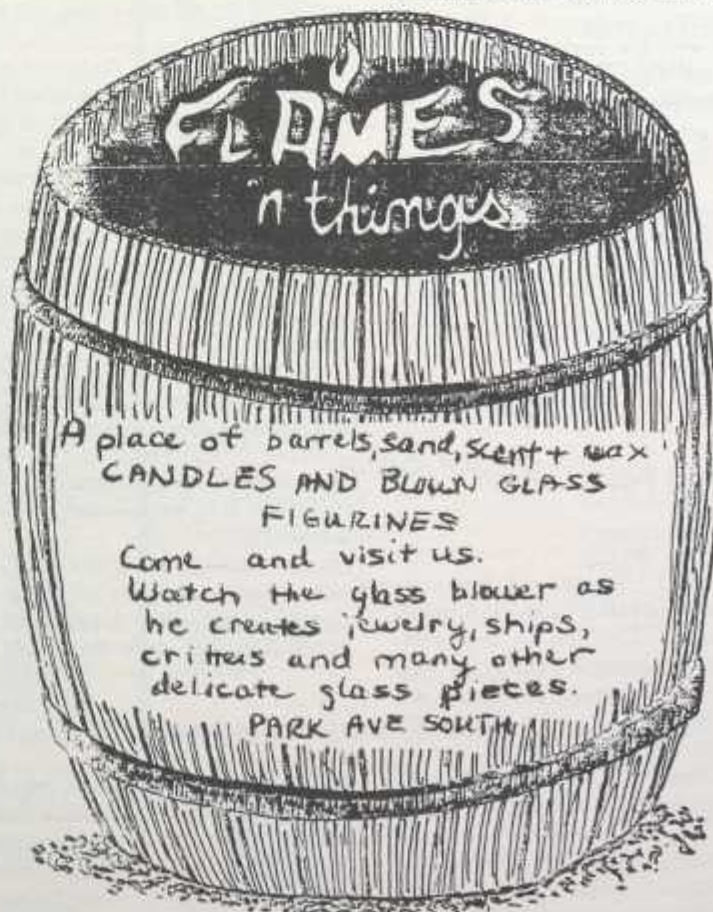 FLAMES
'n things
A place of barrels, sand, scent + wax
CANDLES AND BLOWN GLASS
FIGURINES
Come and visit us.
Watch the glass blower as
he creates jewelry, ships,
critters and many other
delicate glass pieces.
PARK AVE SOUTH